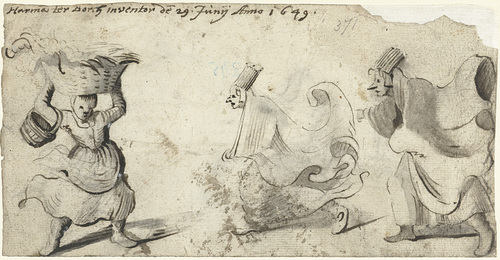 Harma ter Borch inventor de 29 Junij Anno 1649.
371